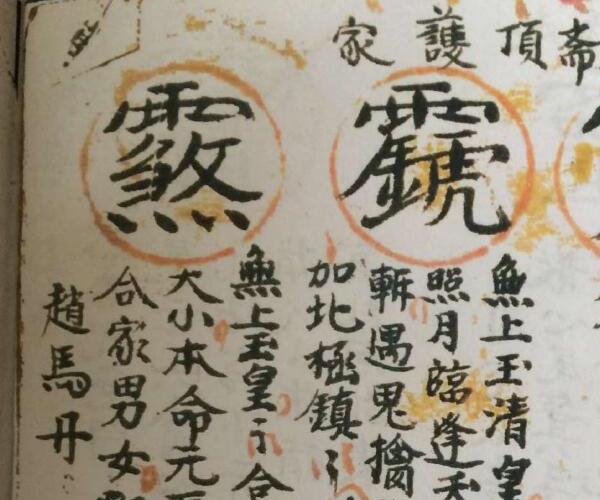 斋頂護家
無上玉清皇
照月臨逢
斬遇鬼擒
加北極鎮
無上玉皇合
大小本命元
合家男女
趙馬丹